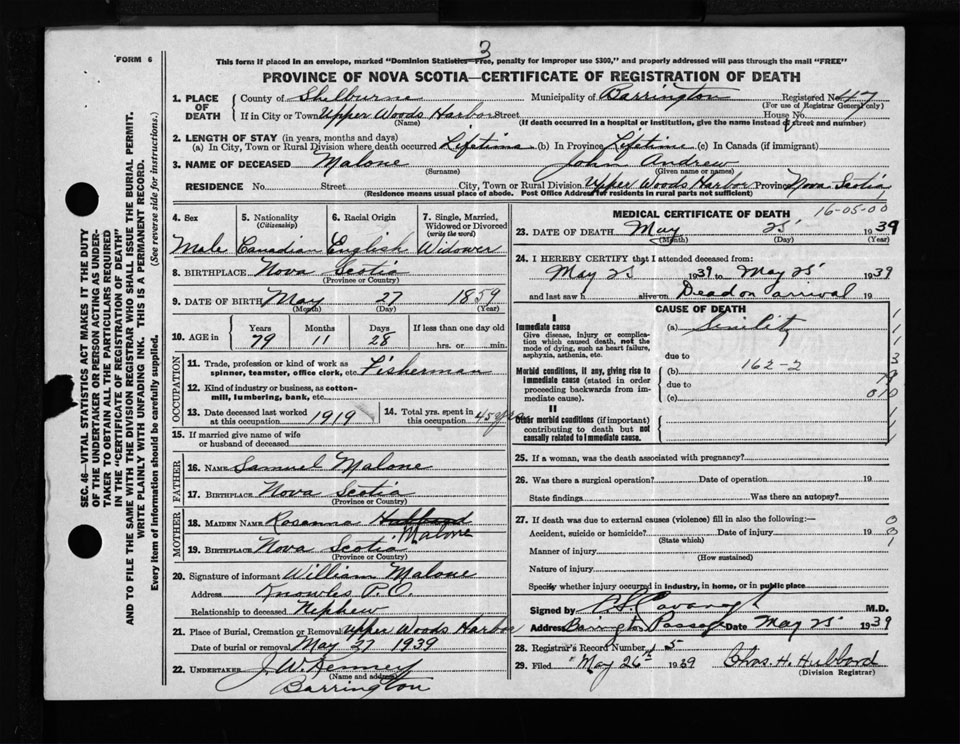 3
FORM 6
This form if placed in an envelope, marked "Dominion Statistics—Free, penalty for improper use $300," and properly addressed will pass through the mail "FREE"
PROVINCE OF NOVA SCOTIA—CERTIFICATE OF REGISTRATION OF DEATH
1. PLACE OF DEATH
County of Shelburne Municipality of Barrington Registered No. 47
(For use of Registrar General only)
If in City or Town Upper Woods Harbor Street House No.
(Name) (If death occurred in a hospital or institution, give the name instead of street and number)
2. LENGTH OF STAY (in years, months and days)
(a) In City, Town or Rural Division where death occurred Lifetime (b) In Province Lifetime (c) In Canada (if immigrant)
3. NAME OF DECEASED Malone John Andrew
(Surname) (Given name or names)
RESIDENCE No. Street City, Town or Rural Division Upper Woods Harbor Province Nova Scotia
(Residence means usual place of abode. Post Office Address for residents in rural parts not sufficient)
4. Sex 5. Nationality (Citizenship) 6. Racial Origin 7. Single, Married, Widowed or Divorced (write the word)
Male Canadian English Widower
8. BIRTHPLACE Nova Scotia
(Province or Country)
9. DATE OF BIRTH May 27 1859
(Month) (Day) (Year)
10. AGE in Years Months Days If less than one day old
79 11 28 hrs. or min.
OCCUPATION
11. Trade, profession or kind of work as spinner, teamster, office clerk, etc. Fisherman
12. Kind of industry or business, as cotton-mill, lumbering, bank, etc.
13. Date deceased last worked at this occupation 1919 14. Total yrs. spent in this occupation 45 yrs
15. If married give name of wife or husband of deceased
FATHER
16. NAME Samuel Malone
17. BIRTHPLACE Nova Scotia
(Province or Country)
MOTHER
18. MAIDEN NAME Rosanna Hubbard
Malone
19. BIRTHPLACE Nova Scotia
(Province or Country)
20. Signature of informant William Malone
Address Knowles P.O.
Relationship to deceased Nephew
21. Place of Burial, Cremation or Removal Upper Woods Harbor
Date of burial or removal May 27 1939
22. UNDERTAKER J. W. Kenney
(Name and address)
Barrington
MEDICAL CERTIFICATE OF DEATH 16-05-00
23. DATE OF DEATH May 25 1939
(Month) (Day) (Year)
24. I HEREBY CERTIFY that I attended deceased from:
May 25 1939 to May 25 1939
and last saw h alive on Dead on arrival 19
CAUSE OF DEATH
I
Immediate cause
Give disease, injury or complication which caused death, not the mode of dying, such as heart failure, asphyxia, asthenia, etc.
(a) Senility
due to
Morbid conditions, if any, giving rise to immediate cause (stated in order proceeding backwards from immediate cause).
162-2
(b)
due to
(c)
II
Other morbid conditions (if important) contributing to death but not causally related to immediate cause.
25. If a woman, was the death associated with pregnancy?
26. Was there a surgical operation? Date of operation 19
State findings Was there an autopsy?
27. If death was due to external causes (violence) fill in also the following:—
Accident, suicide or homicide? Date of injury 19
(State which)
Manner of injury
(How sustained)
Nature of injury
Specify whether injury occurred in industry, in home, or in public place
Signed by Cavanagh M.D.
Address Barrington Passage Date May 25 1939
28. Registrar's Record Number 5
29. Filed May 26th 1939 Chas. H. Hubbard
(Division Registrar)
SEC. 46—VITAL STATISTICS ACT MAKES IT THE DUTY
OF THE UNDERTAKER OR PERSON ACTING AS UNDER-
TAKER TO OBTAIN ALL THE PARTICULARS REQUIRED
IN THE "CERTIFICATE OF REGISTRATION OF DEATH"
AND TO FILE THE SAME WITH THE DIVISION REGISTRAR WHO SHALL ISSUE THE BURIAL PERMIT.
WRITE PLAINLY WITH UNFADING INK. THIS IS A PERMANENT RECORD.
Every item of Information should be carefully supplied. (See reverse side for instructions.)